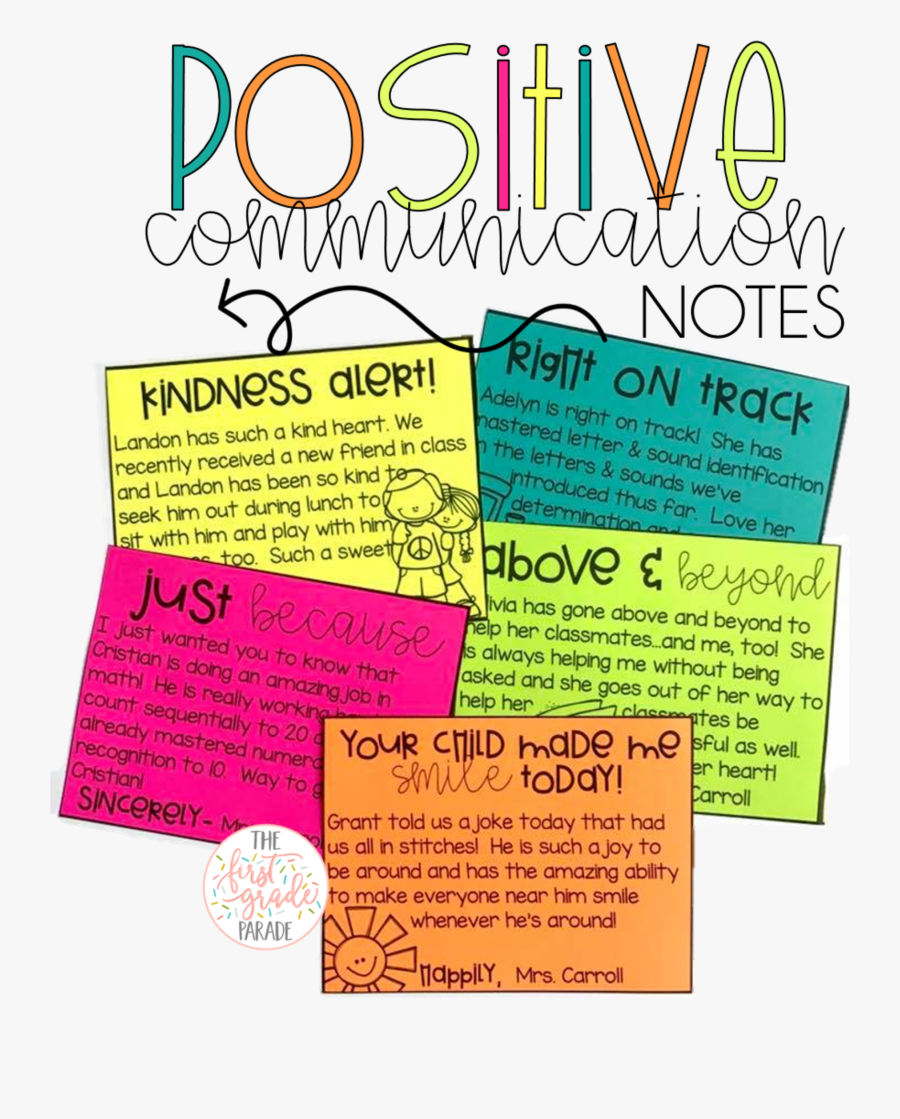 Positive
communication
NOTES
KINDNESS ALERT!
Landon has such a kind heart. We
recently received a new friend in class
and Landon has been so kind to
seek him out during lunch to
sit with him and play with him
too. Such a sweet
RIGHT ON TRACK
Adelyn is right on track! She has
mastered letter & sound identification
the letters & sounds we've
introduced thus far. Love her
determination and
just because
I just wanted you to know that
Cristian is doing an amazing job in
math! He is really working
count sequentially to 20
already mastered
recognition to 10. Way to
Cristian!
SINCERELY-
above & beyond
has gone above and beyond to
help her classmates...and me, too! She
is always helping me without being
asked and she goes out of her way to
help her classmates be
as well.
her heart!
Carroll
YOUR CHILD MADE ME
smile TODAY!
Grant told us a joke today that had
us all in stitches! He is such a joy to
be around and has the amazing ability
to make everyone near him smile
whenever he's around!
Happily, Mrs. Carroll
THE
first
grade
PARADE